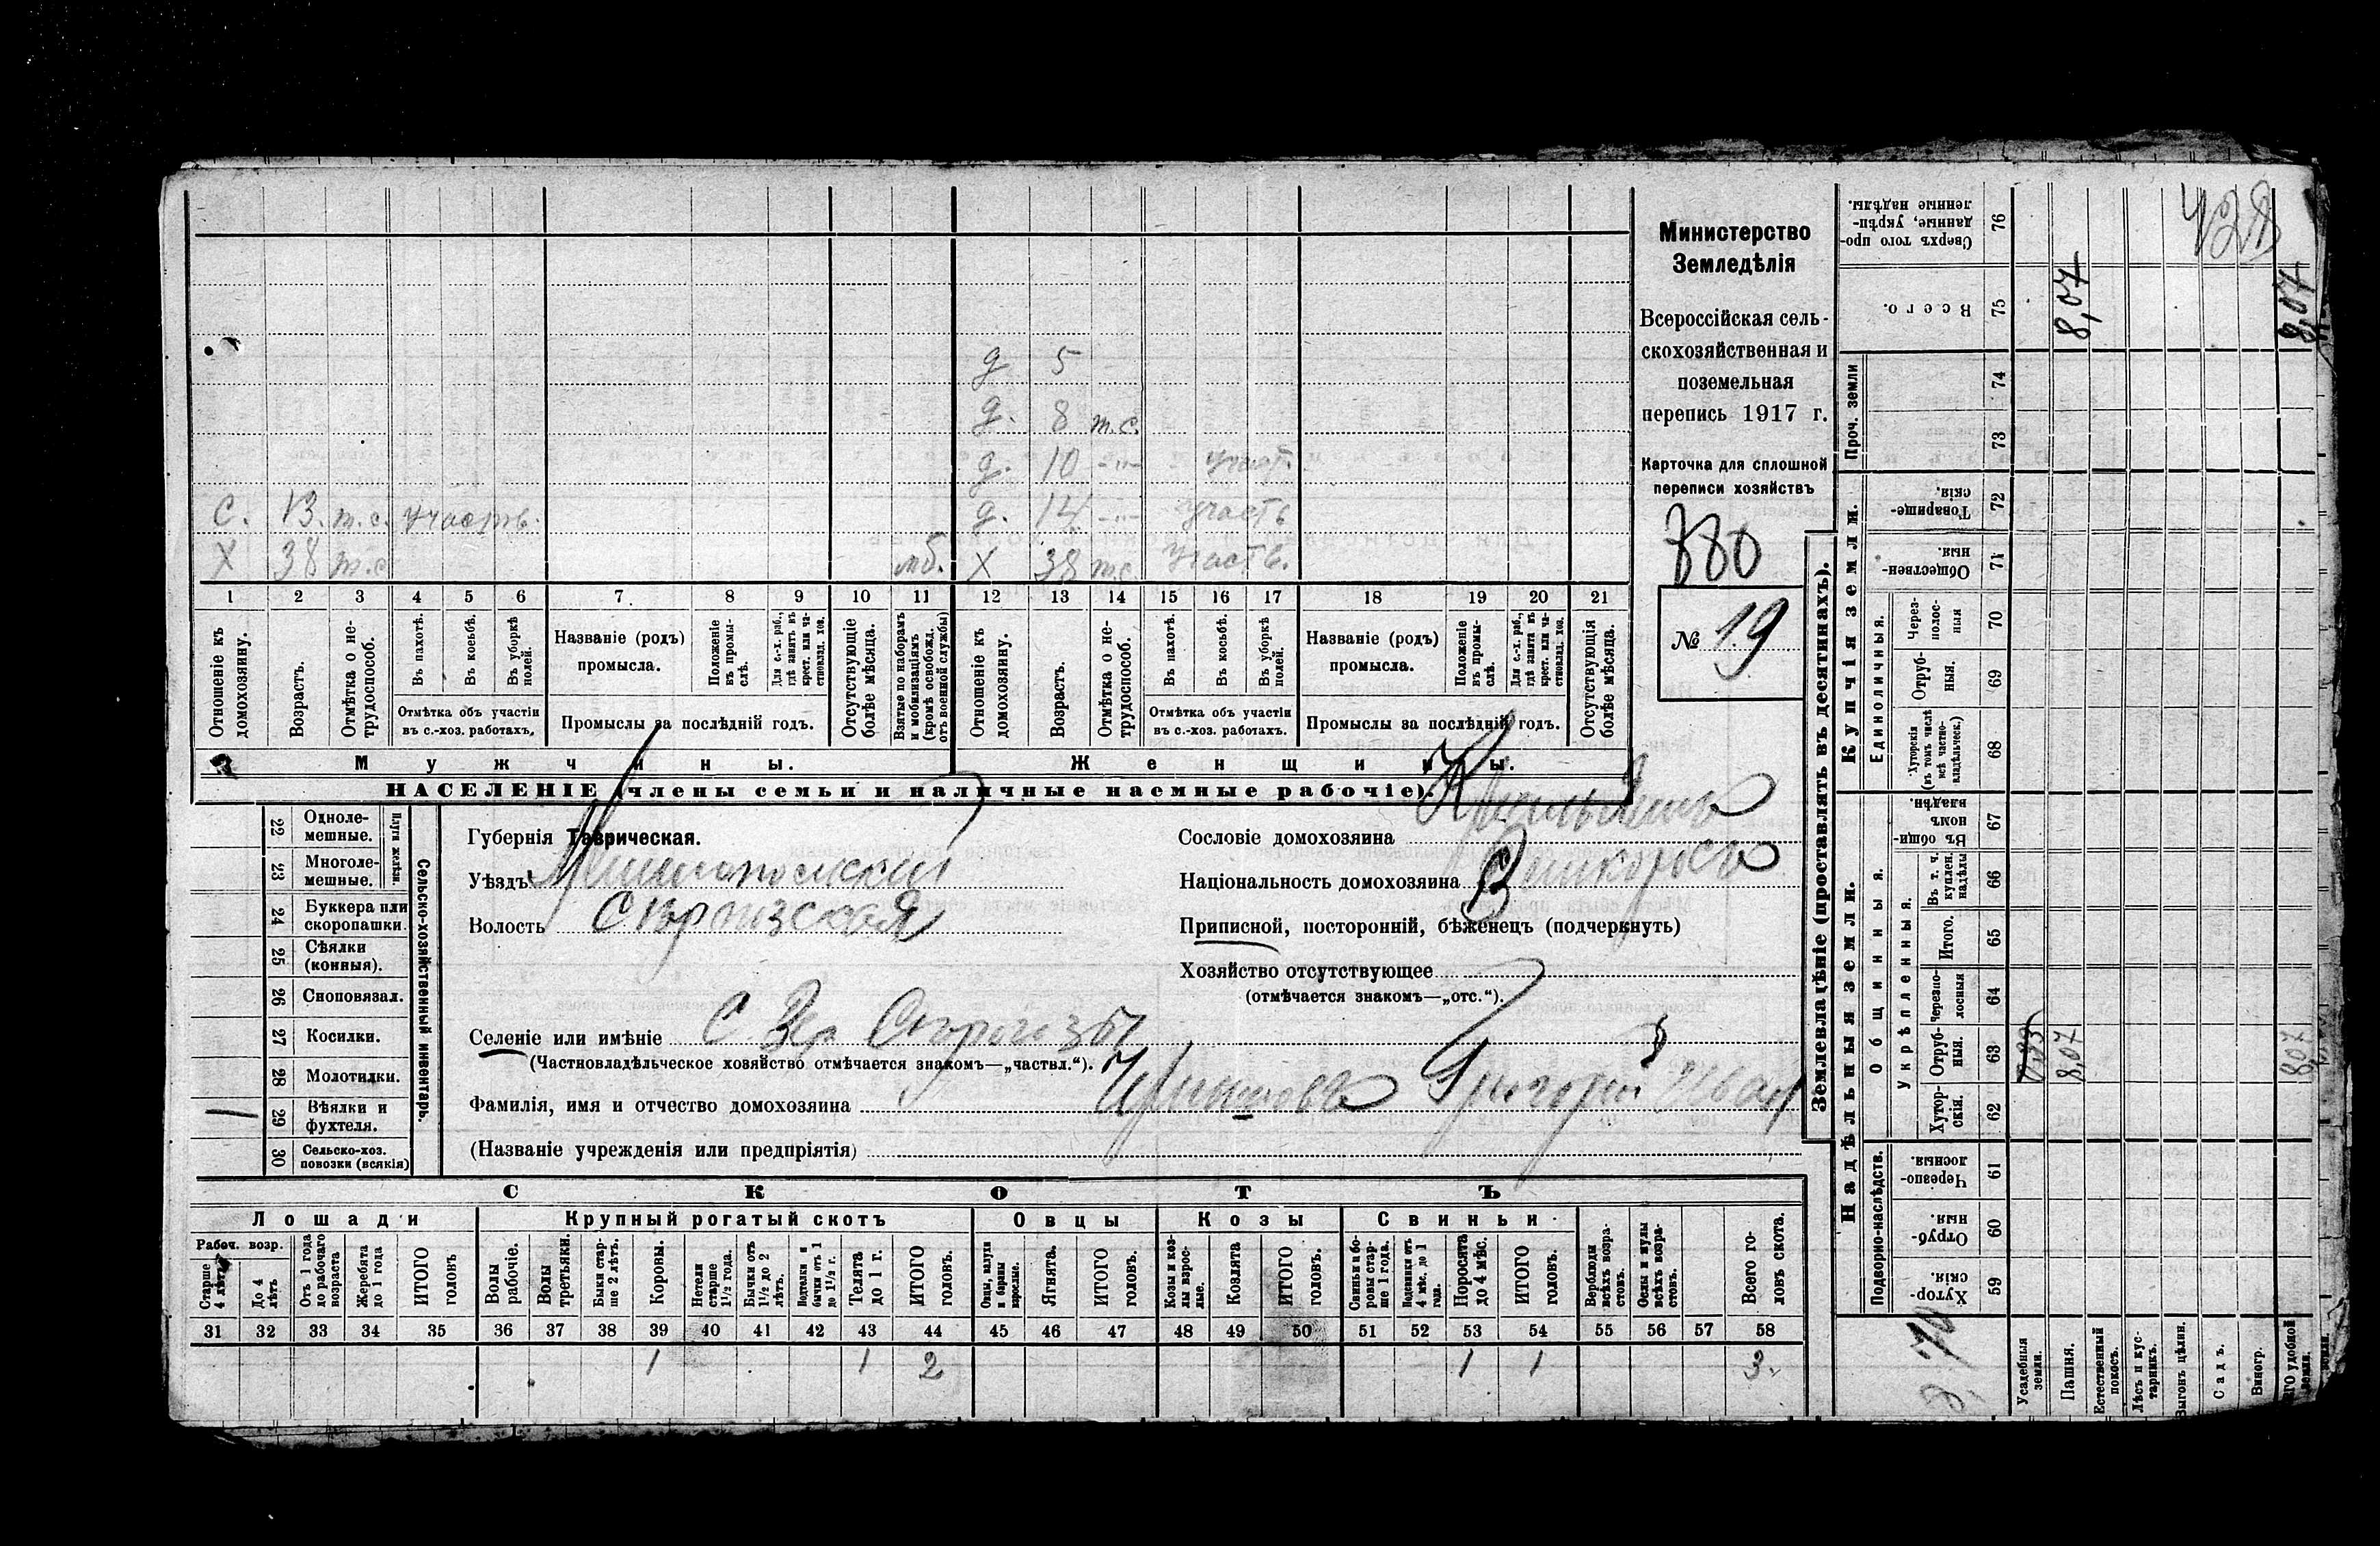 д 5
д. 8 т.с.
д. 10 -"- участ.
с. 13. т.с. участв. д. 14 -"- участь
Х 38 т.с мб. Х 38 т.с. участв.
1 2 3 4 5 6 7 8 9 10 11 12 13 14 15 16 17 18 19 20 21
Отношеніе къ домохозяину.
Возрастъ.
Отмѣтка о не-трудоспособ.
Въ пахотѣ.
Въ косьбѣ.
Въ уборкѣ полей.
Отмѣтка объ участіи въ с.-хоз. работахъ.
Названіе (родъ) промысла.
Положеніе въ промы-слѣ.
Для с.-х. раб., гдѣ занятъ въ крест. или ча-стновлад. хоз.
Промыслы за послѣдній годъ.
Отсутствующіе болѣе мѣсяца.
Взятые по наборамъ и мобилизаціямъ (кромѣ освобожд. отъ военной службы)
Отношеніе къ домохозяину.
Возрастъ.
Отмѣтка о не-трудоспособ.
Въ пахотѣ.
Въ косьбѣ.
Въ уборкѣ полей.
Отмѣтка объ участіи въ с.-хоз. работахъ.
Названіе (родъ) промысла.
Положеніе въ промы-слѣ.
Для с.-х. раб., гдѣ занята въ крест. или ча-стновлад. хоз.
Промыслы за послѣдній годъ.
Отсутствующія болѣе мѣсяца.
Мужчины. Женщины.
НАСЕЛЕНІЕ (члены семьи и наличные наемные рабочіе).
Министерство
Земледѣлія
Всероссійская сель-
скохозяйственная и
поземельная
перепись 1917 г.
Карточка для сплошной
переписи хозяйствъ
880
№ 19
Сельско-хозяйственный инвентарь.
Плуги желѣзн.
22 Одноле-мешные.
23 Многоле-мешные.
24 Буккера или скоропашки.
25 Сѣялки (конныя).
26 Сноповязал.
27 Косилки.
28 Молотилки.
1 29 Вѣялки и фухтеля.
30 Сельско-хоз. повозки (всякія)
Губернія Таврическая.
Уѣздъ Мелитопольскій
Волость
Селеніе или имѣніе С. Вер. Сѣрогозы
(Частновладѣльческое хозяйство отмѣчается знакомъ—„частвл.“).
Фамилія, имя и отчество домохозяина Григорій Иван
(Названіе учрежденія или предпріятія)
Сословіе домохозяина
Національность домохозяина Великорос
Приписной, посторонній, бѣженецъ (подчеркнуть)
Хозяйство отсутствующее
(отмѣчается знакомъ—„отс.“).
СКОТЪ
Лошади Крупный рогатый скотъ Овцы Козы Свиньи
Рабоч. возр.
Старше 4 лѣтъ
До 4 лѣтъ
Отъ 1 года до рабочаго возраста
Жеребята до 1 года
ИТОГО головъ
Волы рабочіе.
Волы третьяки.
Быки стар-ше 2 лѣтъ.
Коровы.
Нетели старше 1½ года.
Бычки отъ 1½ до 2 лѣтъ.
Подтелки и бычки отъ 1 до 1½ г.
Телята до 1 г.
ИТОГО головъ.
Овцы, валухи и бараны взрослые.
Ягнята.
ИТОГО головъ.
Козы и коз-лы взрос-лые.
Козлята
ИТОГО головъ.
Свиньи и бо-ровы стар-ше 1 года.
Подсвинки отъ 4 мѣс. до 1 года.
Поросята до 4 мѣс.
ИТОГО головъ.
Верблюды всѣхъ возра-стовъ.
Ослы и мулы всѣхъ возра-стовъ.
Всего го-ловъ скота.
31 32 33 34 35 36 37 38 39 40 41 42 43 44 45 46 47 48 49 50 51 52 53 54 55 56 57 58
1 1 2 1 1 3
Землевладѣніе (проставлять въ десятинахъ).
Надѣльныя земли. Купчія земли. Проч. земли
Подворно-наслѣдств. Общинныя. Единоличныя.
Укрѣпленныя.
59 Хутор-скія.
60 Отруб-ныя.
61 Черезпо-лосныя.
62 Хутор-скія.
63 Отруб-ныя.
64 Черезпо-лосныя
65 Итого.
66 Въ т. ч. куплен. надѣлы
67 Въ общин-номъ владѣн.
68 Хуторскія (въ томъ числѣ всѣ частно-владѣльческ.)
69 Отруб-ныя.
70 Через-полос-ныя
71 Обществен-ныя.
72 Товарище-скія.
73
74
75 Всего.
76 Сверхъ того про-данные, укрѣп-ленные надѣлы.
Усадебныя земли.
Пашня. 8,07 8,07
Естественный покосъ.
Лѣсъ и кус-тарникъ.
Выгонъ цѣлин.
Садъ.
Виногр.
8,07 8,07